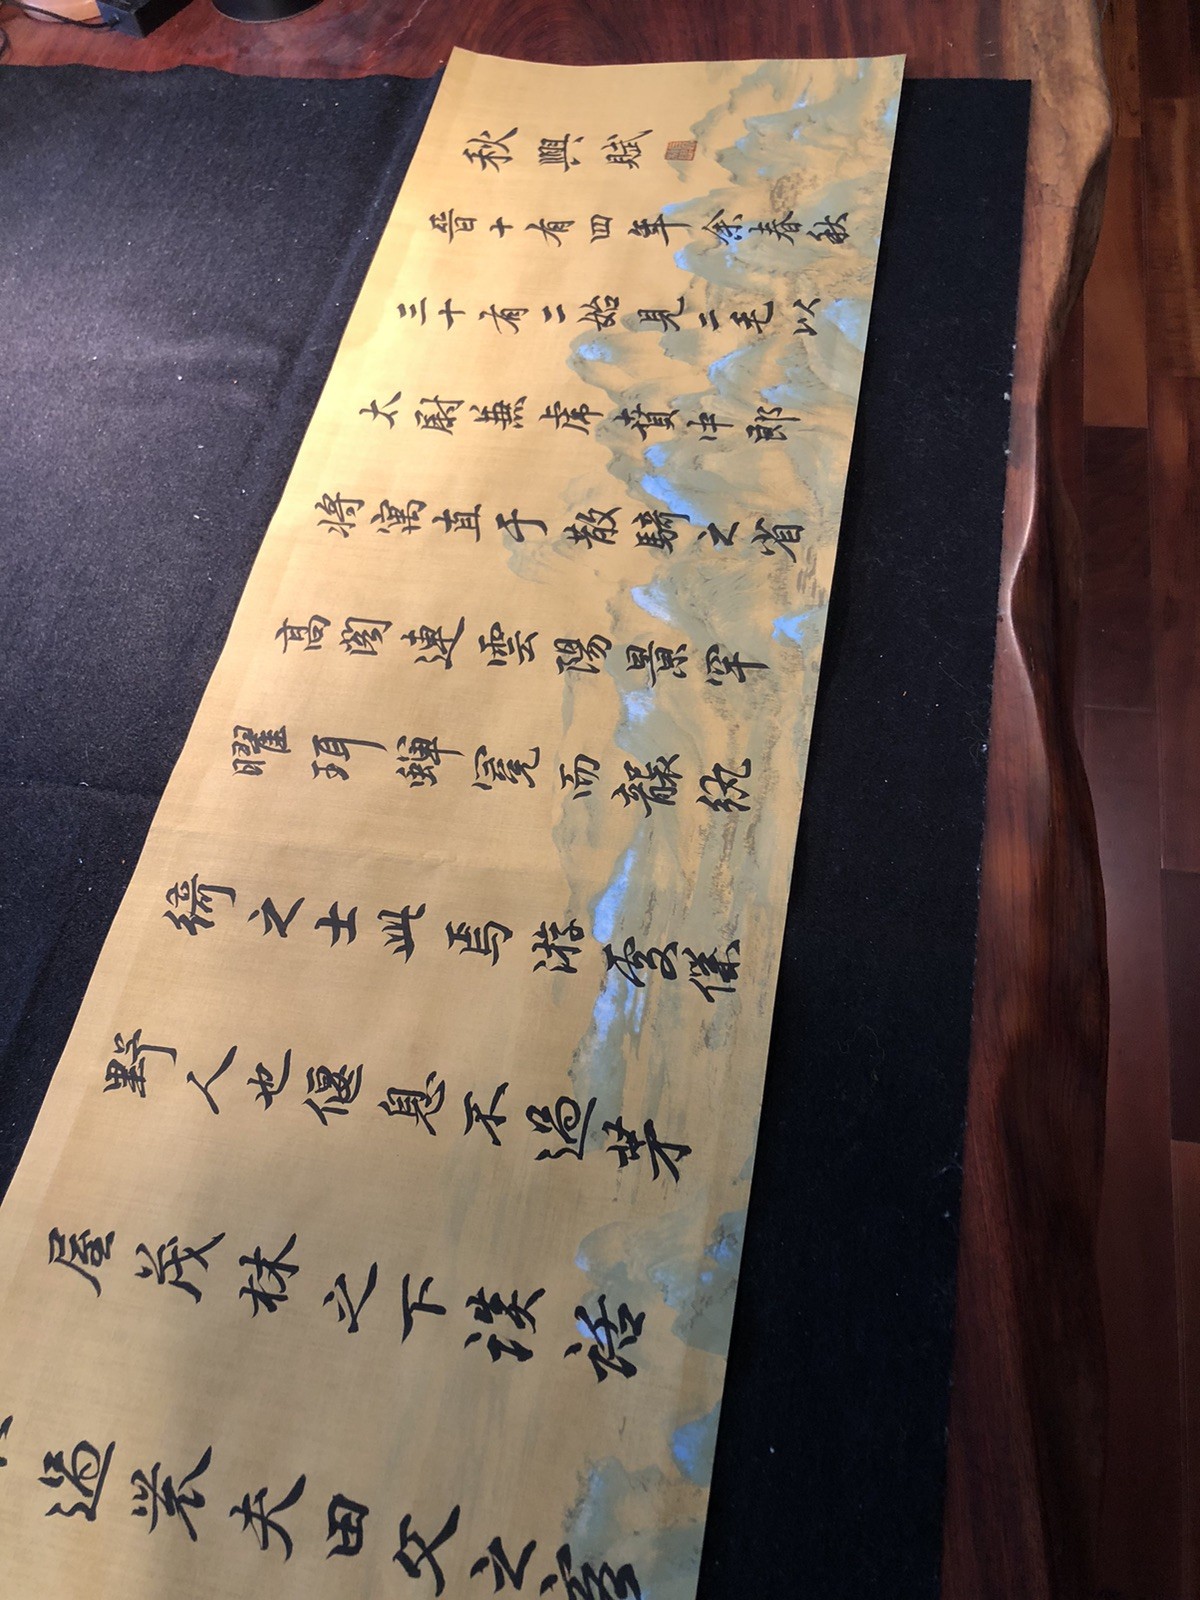 秋興賦
晉十有四年余春秋
三十有二始見二毛以
太尉兼虎賁中郎
將寓直于散騎之省
高閣連雲陽景罕
曜珥蟬冕而襲紈
綺之士此焉游處僕
野人也偃息不過茅
屋茂林之下談話
不過農夫田父之客